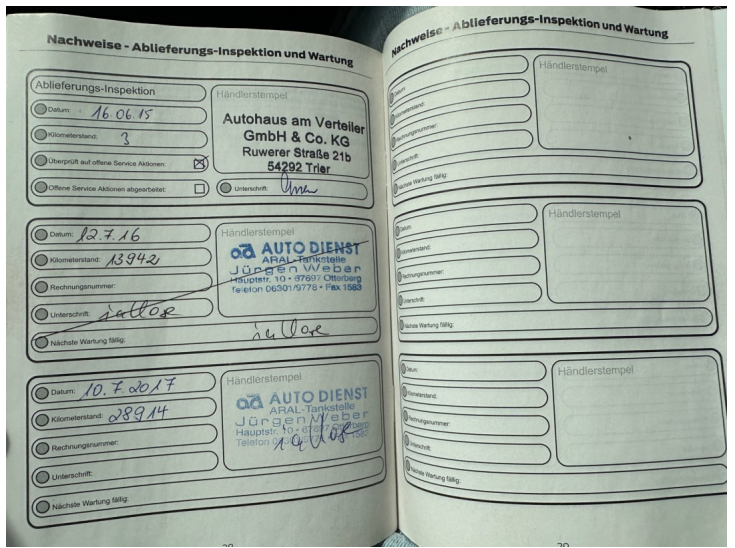 Nachweise - Ablieferungs-Inspektion und Wartung
Ablieferungs-Inspektion
Datum: 16.06.15
Kilometerstand: 3
Überprüft auf offene Service Aktionen:
Offene Service Aktionen abgearbeitet:
Händlerstempel
Autohaus am Verteiler
GmbH & Co. KG
Ruwerer Straße 21b
54292 Trier
Unterschrift:
Datum: 12.7.16
Kilometerstand: 13942
Rechnungsnummer:
Unterschrift:
Nächste Wartung fällig:
Händlerstempel
ad AUTO DIENST
ARAL-Tankstelle
Jürgen Weber
Hauptstr. 10 • 67697 Otterberg
Telefon 06301/9778 • Fax 1583
Datum: 10.7.2017
Kilometerstand: 28914
Rechnungsnummer:
Unterschrift:
Nächste Wartung fällig:
Händlerstempel
ad AUTO DIENST
ARAL-Tankstelle
Jürgen Weber
Hauptstr. 10
Telefon
28
Nachweise - Ablieferungs-Inspektion und Wartung
Datum:
Kilometerstand:
Rechnungsnummer:
Unterschrift:
Nächste Wartung fällig:
Händlerstempel
Datum:
Kilometerstand:
Rechnungsnummer:
Unterschrift:
Nächste Wartung fällig:
Händlerstempel
Datum:
Kilometerstand:
Rechnungsnummer:
Unterschrift:
Nächste Wartung fällig:
Händlerstempel